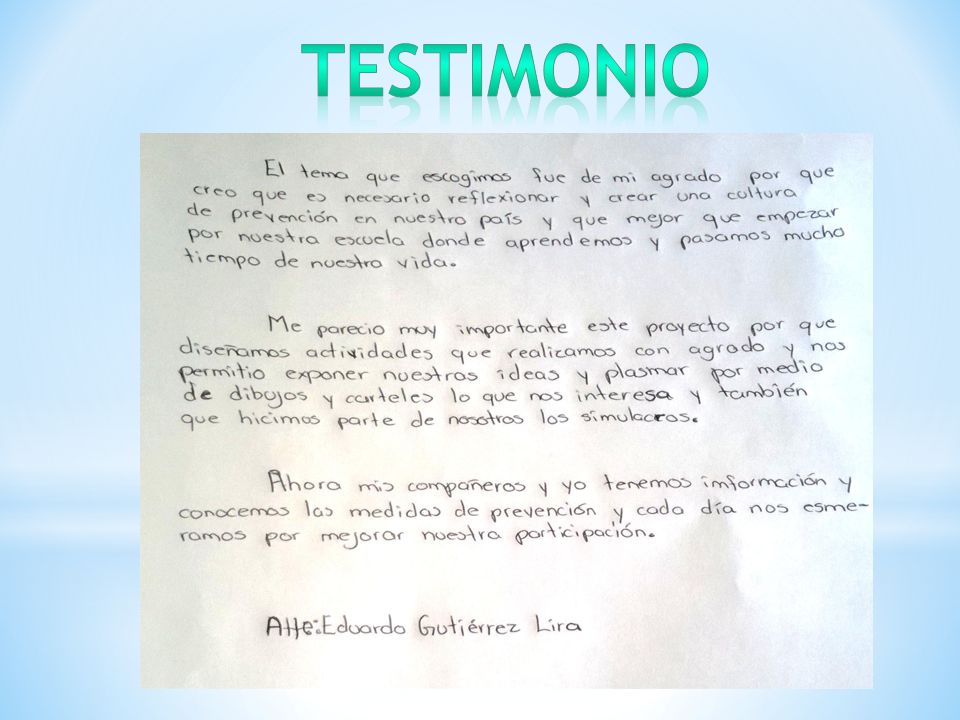 TESTIMONIO
El tema que escogimos fue de mi agrado por que
creo que es necesario reflexionar y crear una cultura
de prevención en nuestro país y que mejor que empezar
por nuestra escuela donde aprendemos y pasamos mucho
tiempo de nuestro vida.
Me parecio muy importante este proyecto por que
diseñamos actividades que realizamos con agrado y nos
permitio exponer nuestras ideas y plasmar por medio
de dibujos y carteles lo que nos interesa y también
que hicimos parte de nosotros los simulacros.
Ahora mis compañeros y yo tenemos información y
conocemos las medidas de prevención y cada día nos esme-
ramos por mejorar nuestra participación.
Atte:Eduardo Gutiérrez Lira